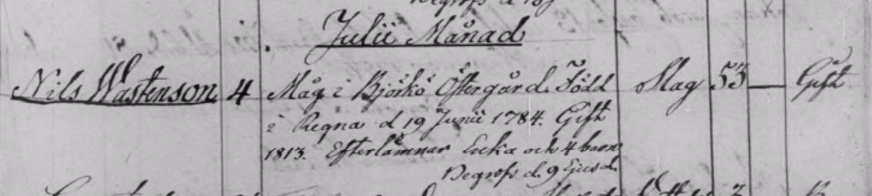 Julii Månad
Nils Wastenson 4 Måg i Björkö Östergård. Född Slag 53 — Gift
i Regna d 19 Junii 1784. Gift
1813. Efterlämnar Encka och 4 barn
Begrofs d. 9 Ejusd.